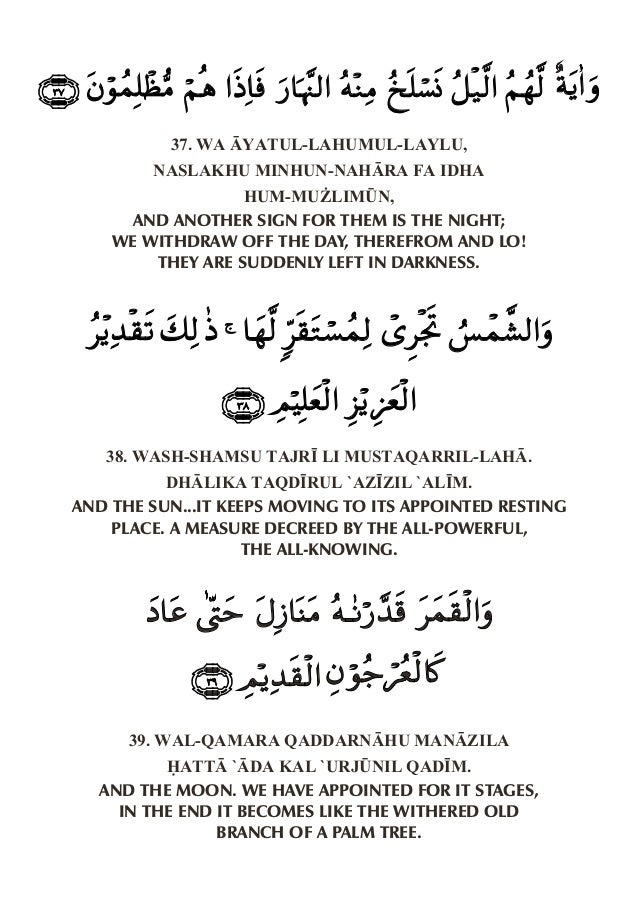 وَاٰيَةٌ لَّهُمُ الَّيْلُ نَسْلَخُ مِنْهُ النَّهَارَ فَاِذَا هُمْ مُّظْلِمُوْنَ ٣٧
37. WA ĀYATUL-LAHUMUL-LAYLU,
NASLAKHU MINHUN-NAHĀRA FA IDHA
HUM-MUŻLIMŪN,
AND ANOTHER SIGN FOR THEM IS THE NIGHT;
WE WITHDRAW OFF THE DAY, THEREFROM AND LO!
THEY ARE SUDDENLY LEFT IN DARKNESS.
وَالشَّمْسُ تَجْرِىْ لِمُسْتَقَرٍّ لَّهَا ۚ ذٰلِكَ تَقْدِيْرُ
الْعَزِيْزِ الْعَلِيْمِ ٣٨
38. WASH-SHAMSU TAJRĪ LI MUSTAQARRIL-LAHĀ.
DHĀLIKA TAQDĪRUL `AZĪZIL `ALĪM.
AND THE SUN...IT KEEPS MOVING TO ITS APPOINTED RESTING
PLACE. A MEASURE DECREED BY THE ALL-POWERFUL,
THE ALL-KNOWING.
وَالْقَمَرَ قَدَّرْنٰهُ مَنَازِلَ حَتّٰى عَادَ
كَالْعُرْجُوْنِ الْقَدِيْمِ ٣٩
39. WAL-QAMARA QADDARNĀHU MANĀZILA
ḤATTĀ `ĀDA KAL `URJŪNIL QADĪM.
AND THE MOON. WE HAVE APPOINTED FOR IT STAGES,
IN THE END IT BECOMES LIKE THE WITHERED OLD
BRANCH OF A PALM TREE.